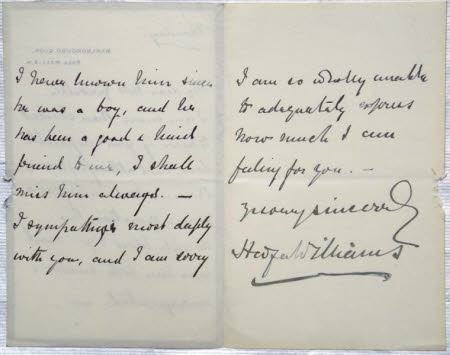 I have known him since
he was a boy, and he
has been a good & kind
friend to me, I shall
miss him always. —
I sympathise most deeply
with you, and I am sorry
I am so wholly unable
to adequately express
how much I am
feeling for you. —
yours sincerely
Hwfa Williams